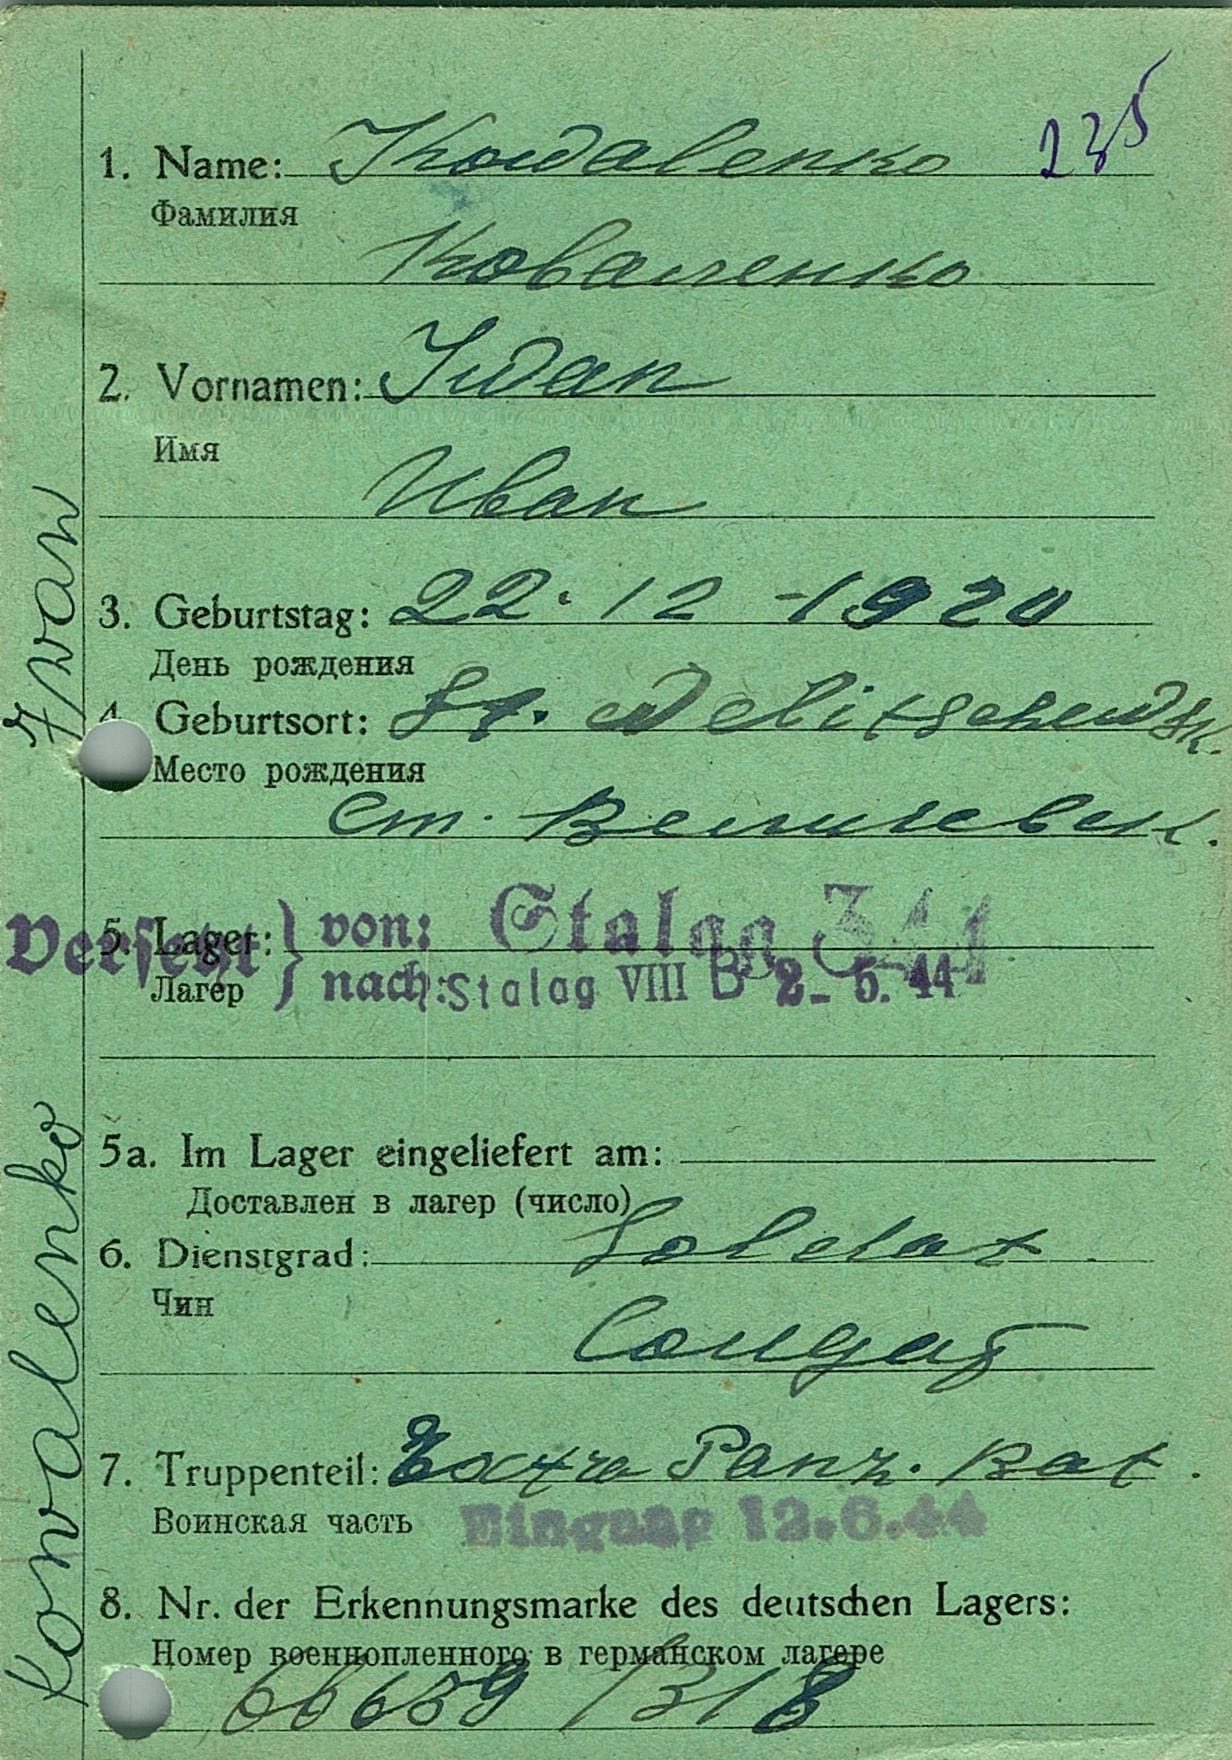 235
1. Name: Kowalenko
Фамилия
Коваленко
2. Vornamen: Iwan
Имя
Иван
3. Geburtstag: 22. 12 - 1920
День рождения
4. Geburtsort: St. Welitschewsk.
Место рождения
Ст. Величевск.
5. Lager:
Лагер
Versetzt } von: Stalag
nach: Stalag VIII B 2. 5. 44
5a. Im Lager eingeliefert am:
Доставлен в лагер (число)
6. Dienstgrad: Soldat.
Чин
Солдат
7. Truppenteil: Panz. Bat.
Воинская часть
Eingang 12.6.44
8. Nr. der Erkennungsmarke des deutschen Lagers:
Номер военнопленного в германском лагере
66659 / 318
Kowalenko Iwan